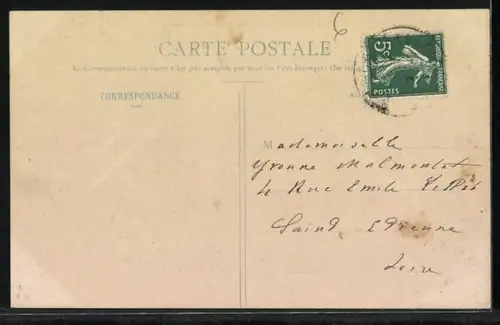 6
CARTE POSTALE
La Correspondance au recto n'est pas acceptée par tous les Pays Étrangers (Se
CORRESPONDANCE
5c
POSTES
Mademoiselle
Yvonne Malmontet
4 Rue Emile
Saind Etienne
Loire